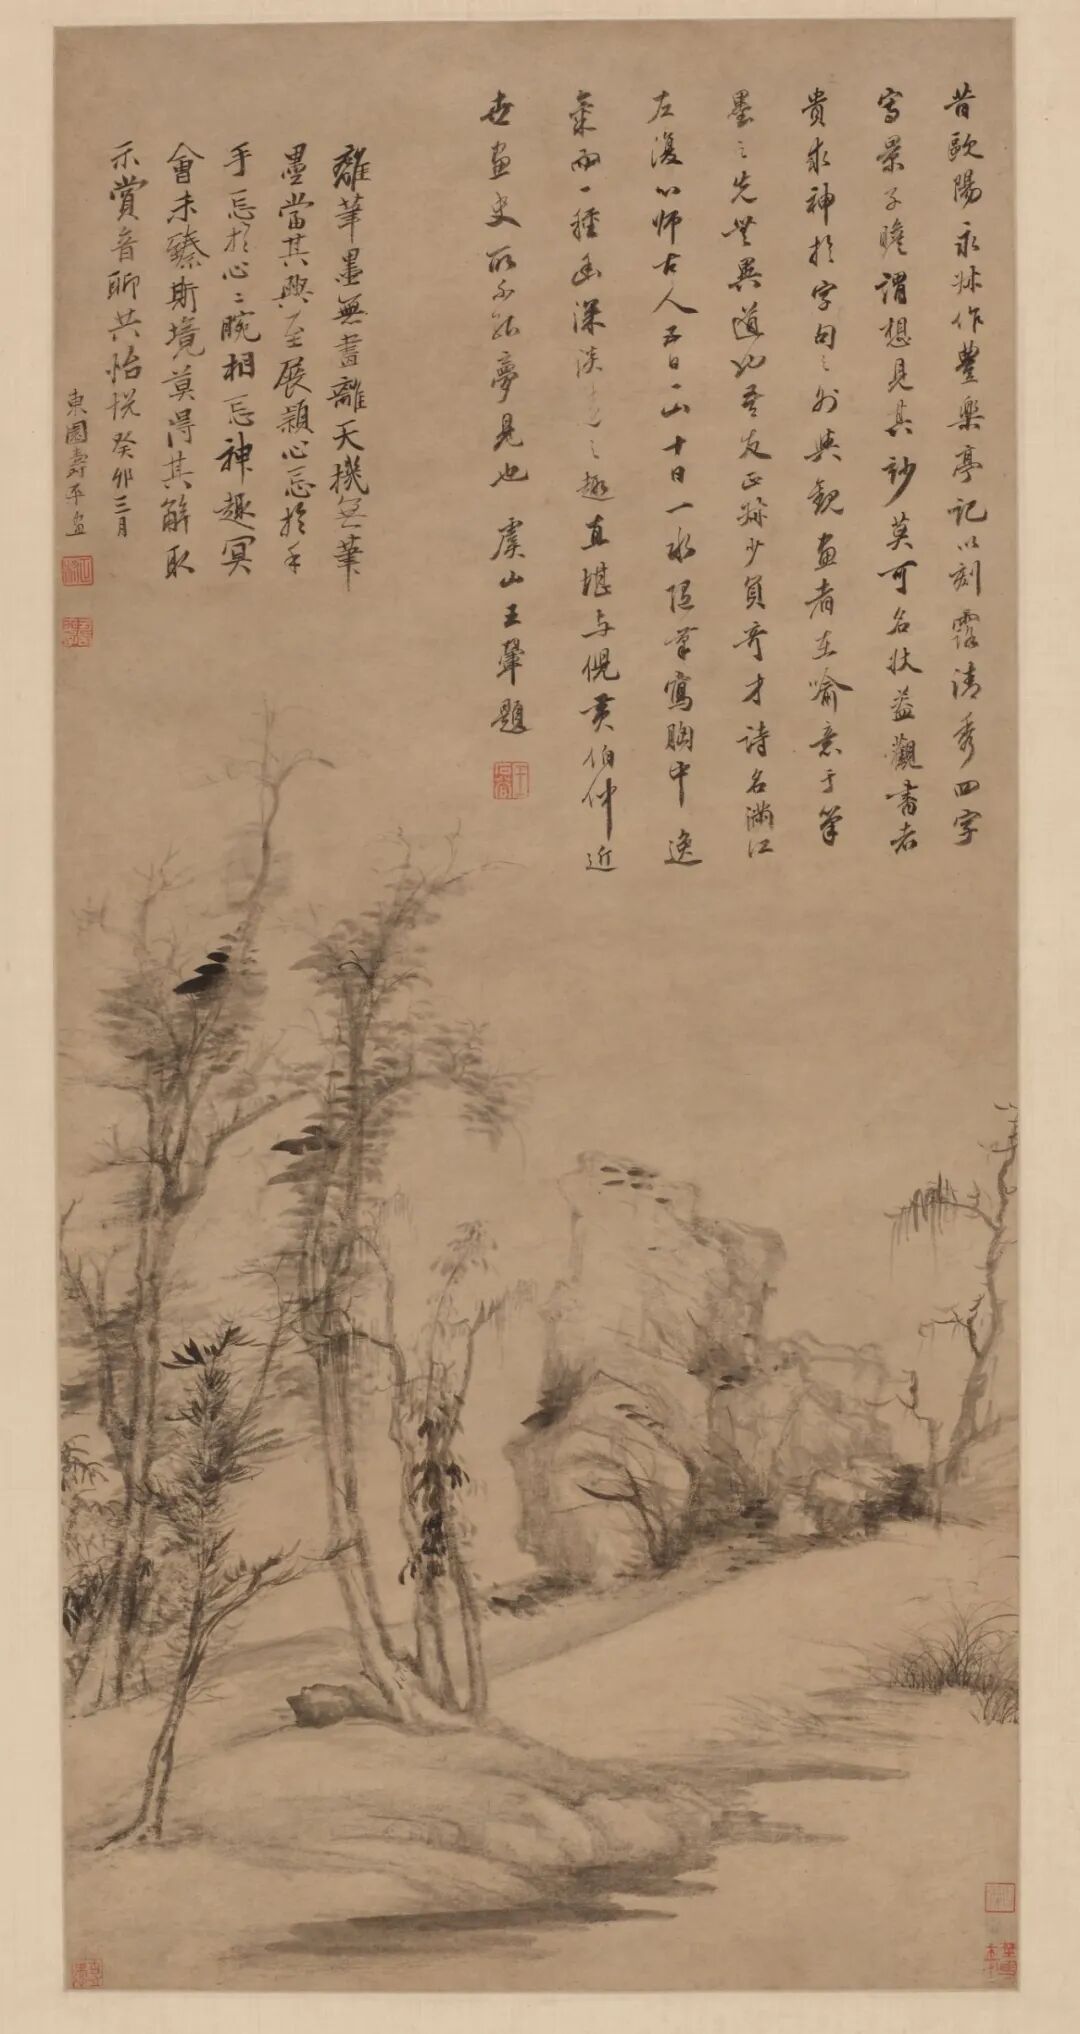 昔歐陽永叔作豐樂亭記以刻露清秀四字
寫景子瞻謂想見其妙莫可名狀益觀書者
貴求神於字句之外與觀畫者在喻意于筆
墨之先無異道也吾友正叔少負奇才詩名滿江
左復以師古人五日一山十日一水隨筆寫胸中逸
氣而一種幽深淡遠之趣直堪与倪黃伯仲近
世畫史所不能夢見也 虞山王翬題
離筆墨無畫離天機無筆
墨當其興至展穎心忘於手
手忘於心心腕相忘神趣冥
會未臻斯境莫得其解取
示賞音聊共怡悅癸卯三月
東園壽平畫